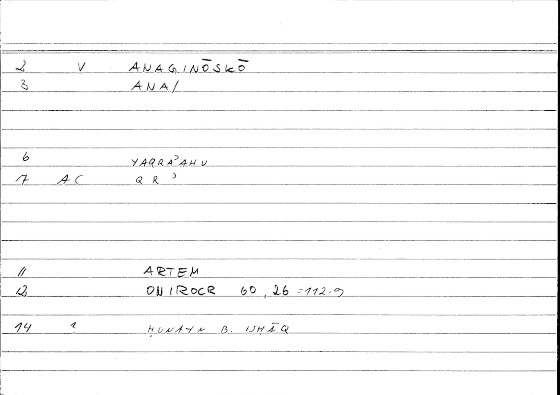 2 V ANAGINŌSKŌ
3 ANA/
6 YAQRAʾAHU
7 AC QRʾ
11 ARTEM
12 ONIROCR 60,26 = 112.9
14 ḤUNAYN B. ISḤĀQ